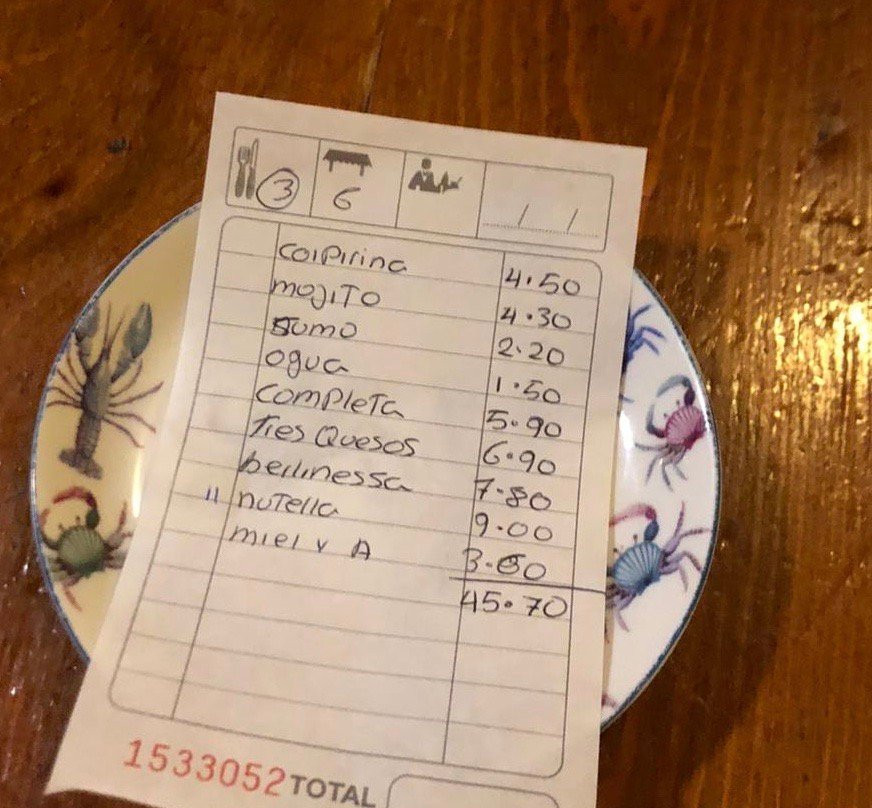 3 6 / /
Coipirina 4.50
MOJITO 4.30
Sumo 2.20
ogua 1.50
COMPLETA 5.90
Tres Quesos 6.90
berlinessa 7.80
11 NUTella 9.00
miel y A 3.60
45.70
1533052 TOTAL